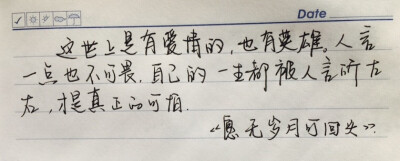 Date
这世上是有爱情的,也有英雄。人言
一点也不可畏,自己的一生都被人言所左
右,才是真正的可怕.
“愿无岁月可回头”.